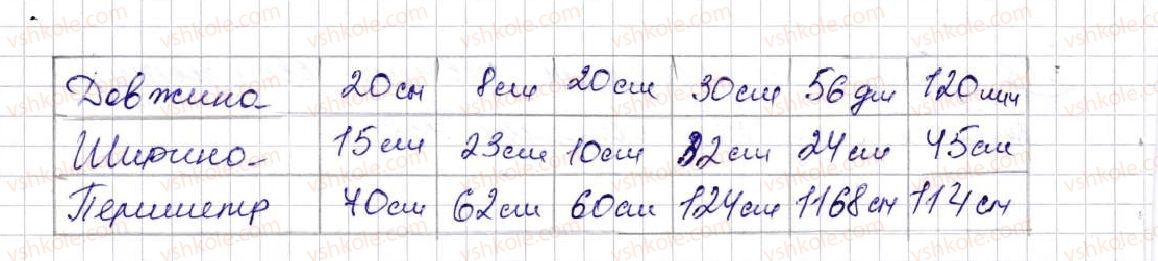 Довжина 20см 8см 20см 30см 56дм 120мм
Ширина 15см 23см 10см 32см 24см 45см
Периметр 70см 62см 60см 124см 1168см 114см